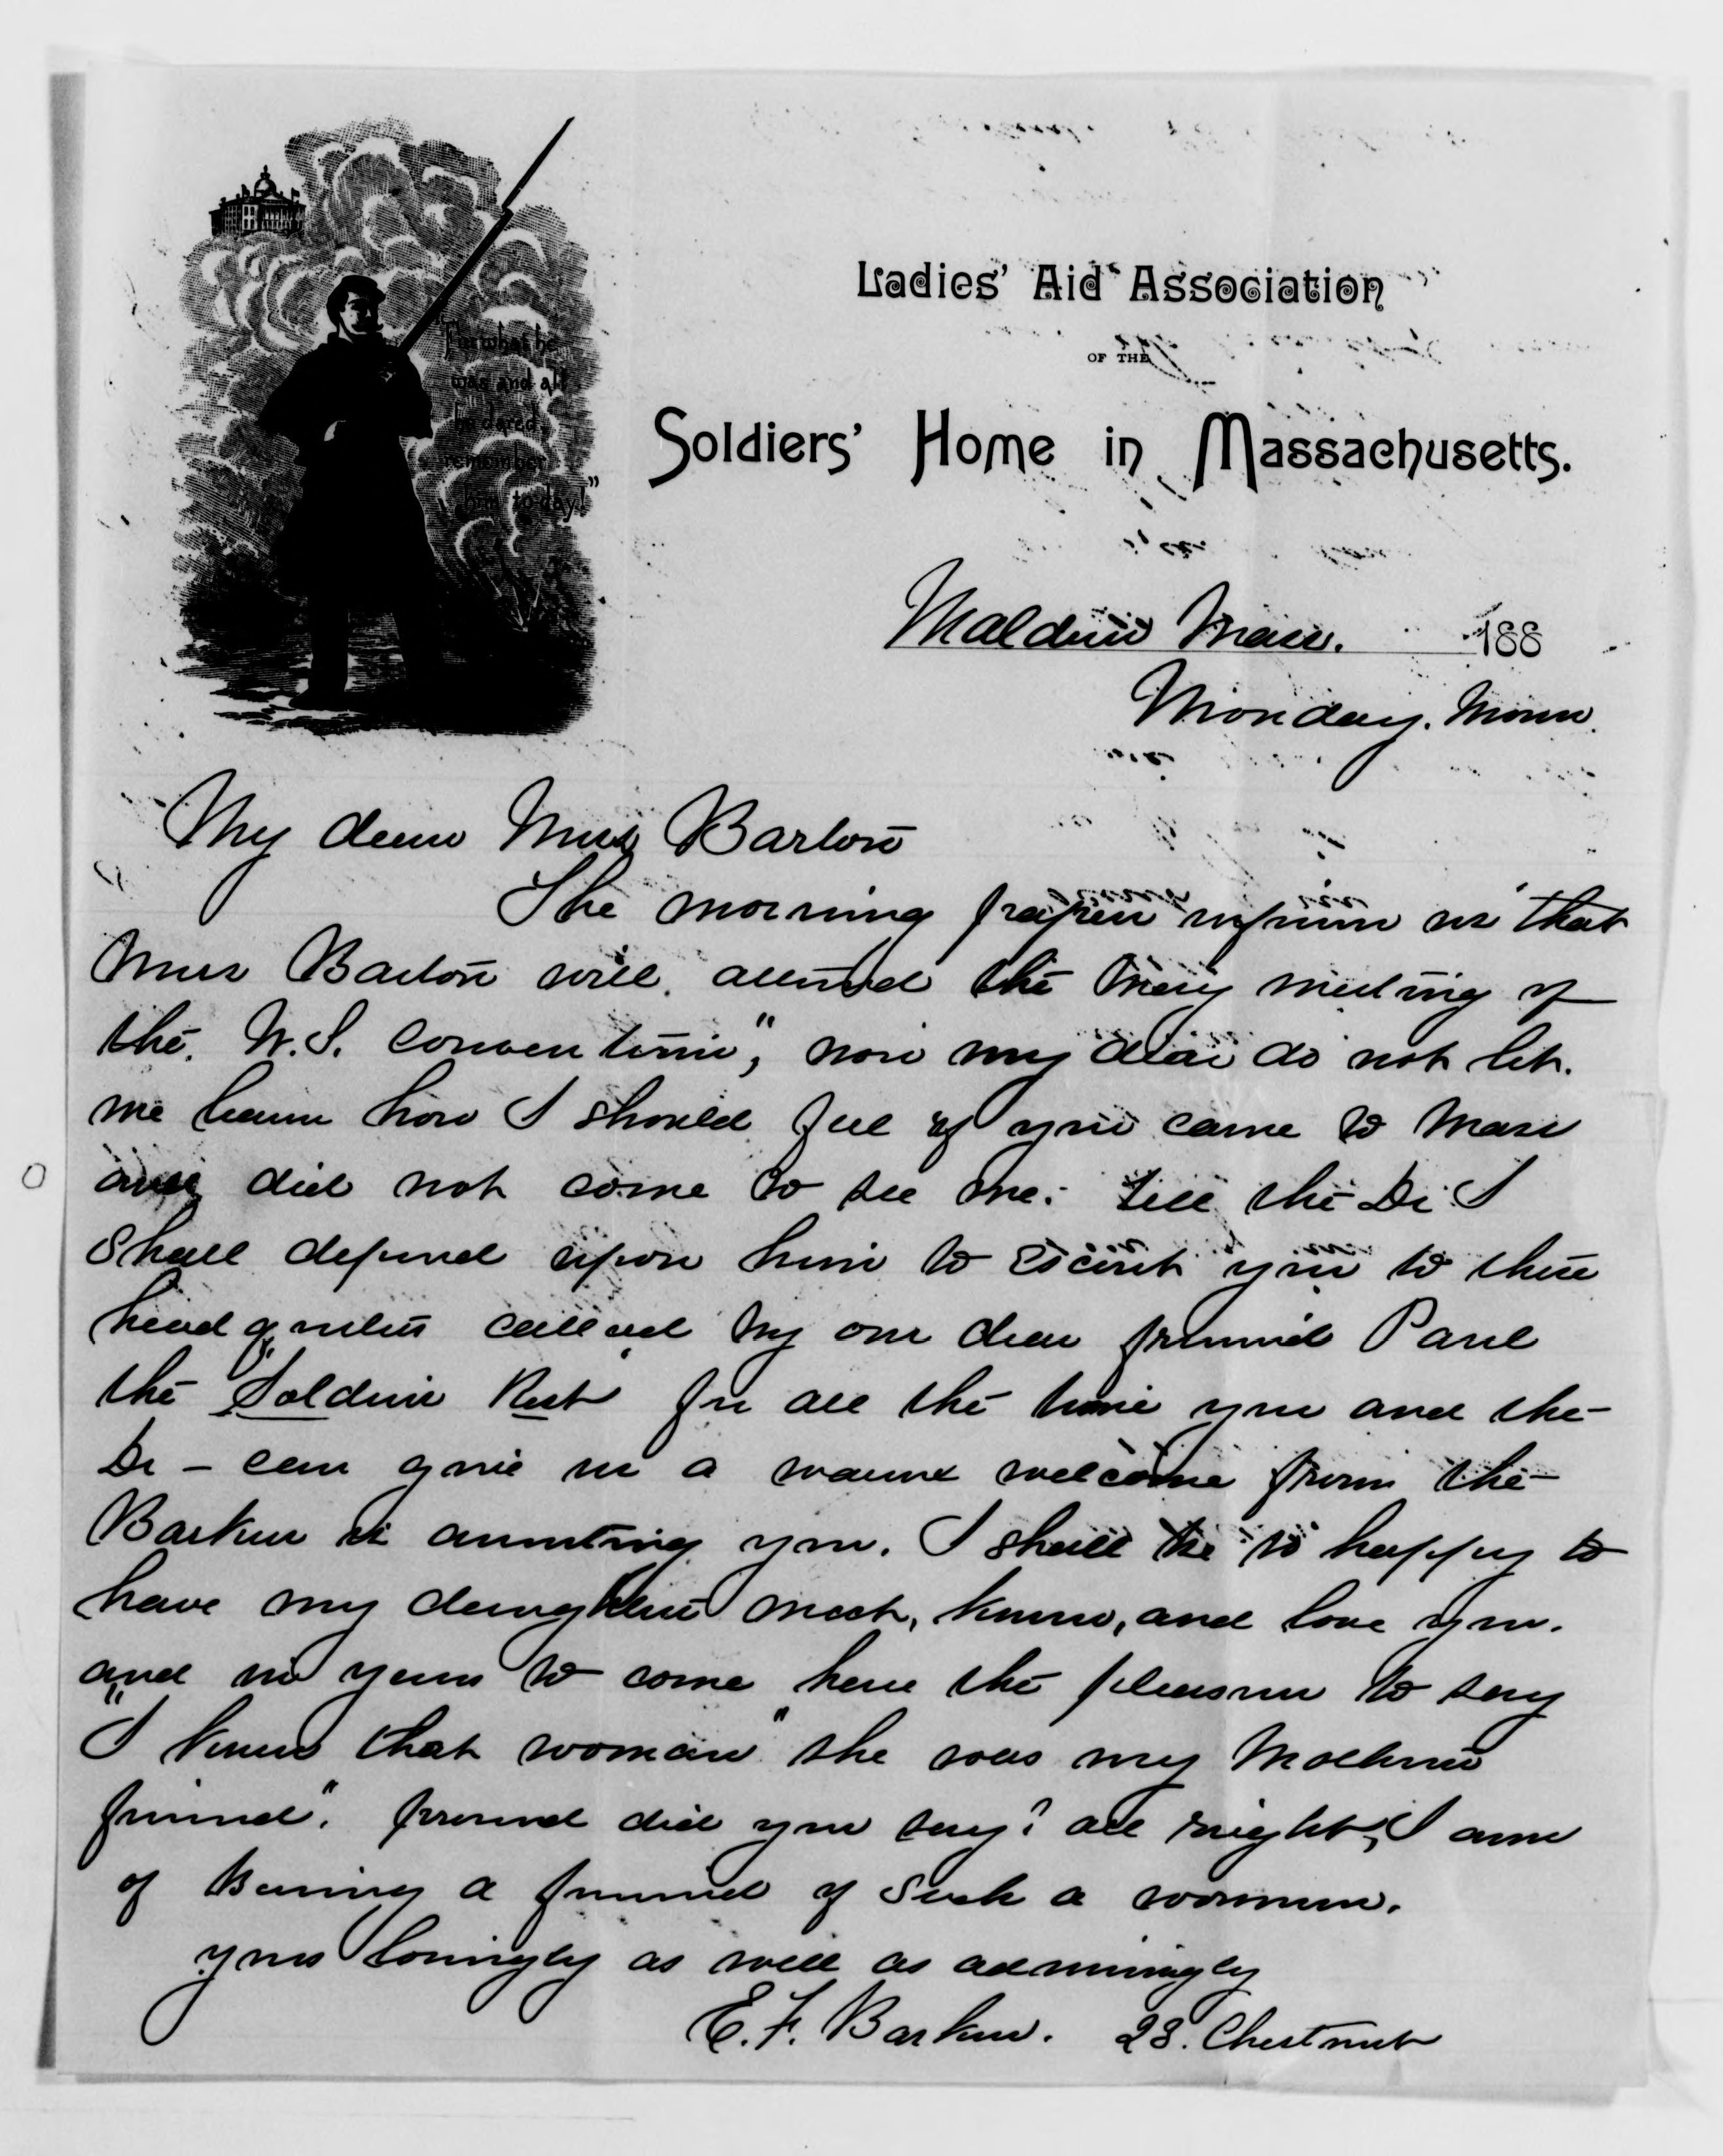 "For what he
was and all
he dared,
remember
him to-day!"
Ladies' Aid Association
OF THE
Soldiers' Home in Massachusetts.
Malden Mass. 188
Monday. Morn.
My dear Miss Barton
The morning paper inform us "that
Miss Barton will attend the May meeting of
the W. S. Convention", now my dear do not let
me learn how I should feel if you came to Mass
and did not come to see me. Tell the Dr. I
shall depend upon him to escort you to these
head quarters called by our dear friend Paul
the "Soldiers Rest" for all the time you and the
Dr - can give us a warm welcome from the
Barkers is awaiting you. I shall be so happy to
have my daughters meet, know, and love you.
and in years to come have the pleasure to say
"I knew that woman" she was my Mothers
friend". proud did you say? all right, I am
of being a friend of such a woman.
yours lovingly as well as admiringly
E. F. Barker. 28. Chestnut